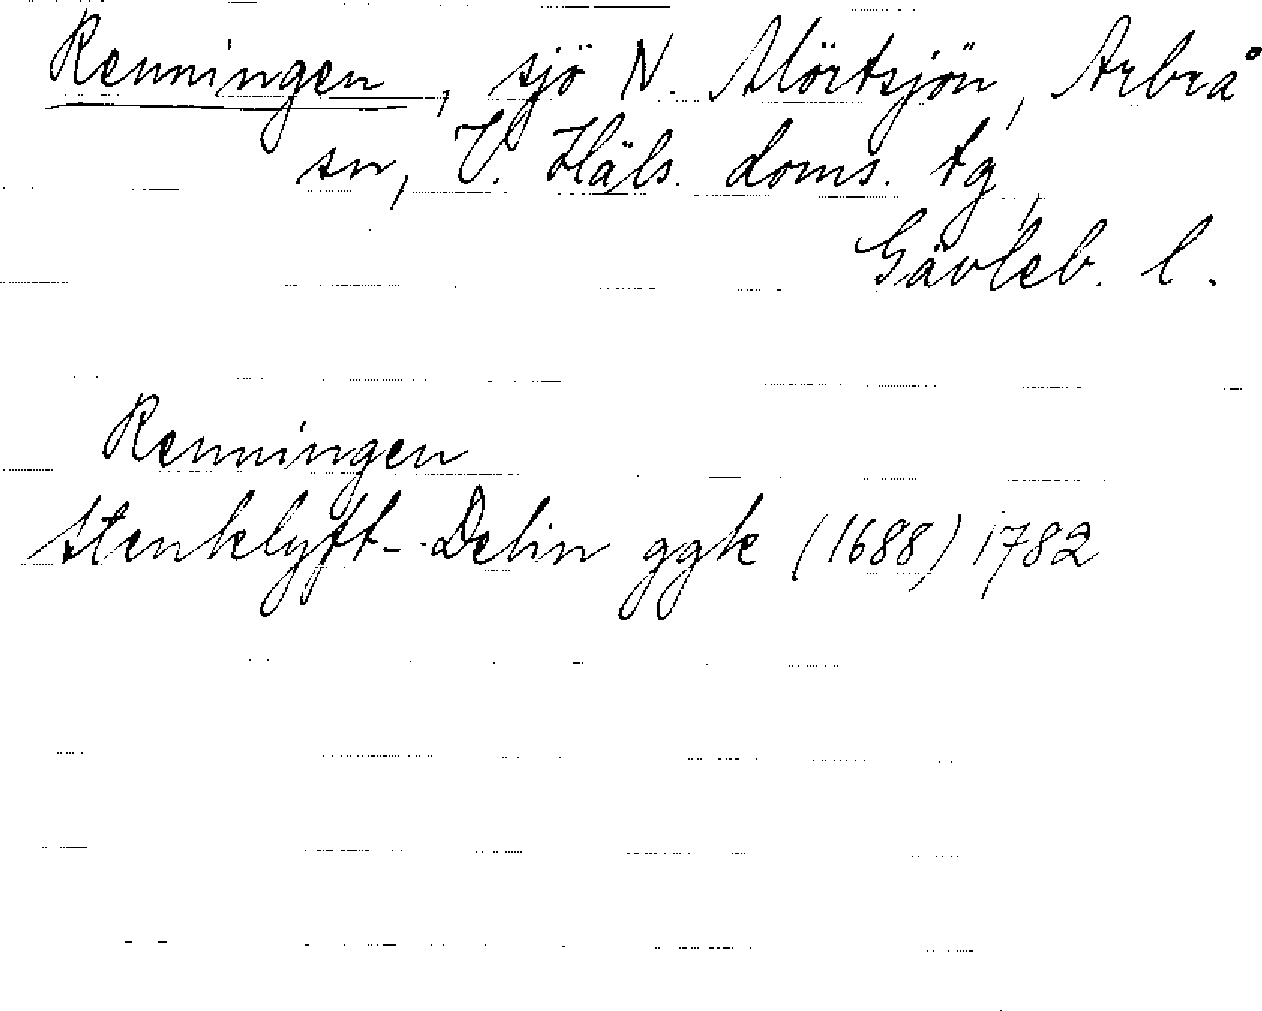 Renningen, sjö N. Mörtsjön, Arbrå
sn, V. Häls. doms. tg,
Gävleb. l.
Renningen
Stenklyft-Delin ggk (1688) 1782